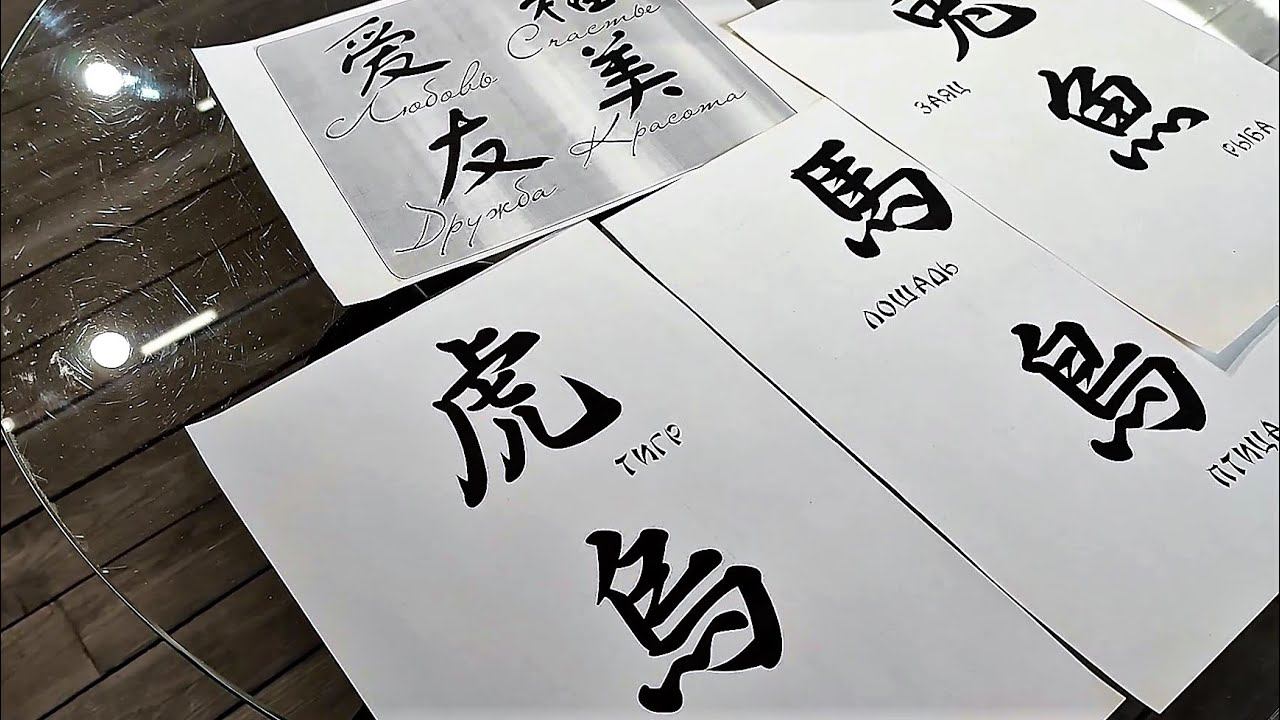 爱
Любовь
Счастье
友
Дружба
美
Красота
ЗАЯЦ
魚
РЫБА
馬
ЛОШАДЬ
鳥
ПТИЦА
虎
ТИГР
烏